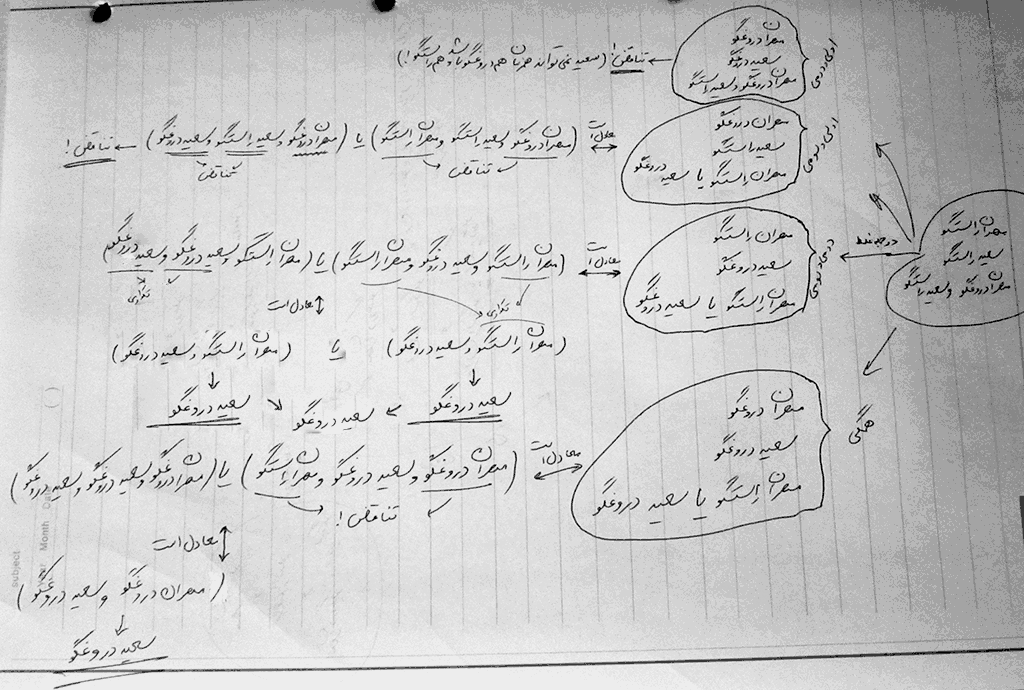 مهران راستگو
سعید راستگو
مهران دروغگو و سعید راستگو
دو جمله غلط
اولی و دومی
مهران دروغگو
سعید دروغگو
مهران دروغگو و سعید راستگو
← تناقض! (سعید نمی‌تواند همزمان هم دروغگو باشد هم راستگو!)
اولی و سومی
مهران دروغگو
سعید راستگو
مهران راستگو یا سعید دروغگو
معادل است
(مهران دروغگو و سعید راستگو و مهران راستگو) یا (مهران دروغگو و سعید راستگو و سعید دروغگو) ← تناقض!
تناقض
تناقض
دومی و سومی
مهران راستگو
سعید دروغگو
مهران راستگو یا سعید دروغگو
معادل است
(مهران راستگو و سعید دروغگو و مهران راستگو) یا (مهران راستگو و سعید دروغگو و سعید دروغگو)
تکراری
تکراری
معادل است
(مهران راستگو و سعید دروغگو) یا (مهران راستگو و سعید دروغگو)
سعید دروغگو ← سعید دروغگو → سعید دروغگو
همگی
مهران دروغگو
سعید دروغگو
مهران راستگو یا سعید دروغگو
معادل است
(مهران دروغگو و سعید دروغگو و مهران راستگو) یا (مهران دروغگو و سعید دروغگو و سعید دروغگو)
تناقض!
معادل است
(مهران دروغگو و سعید دروغگو)
سعید دروغگو
subject
Year Month Date